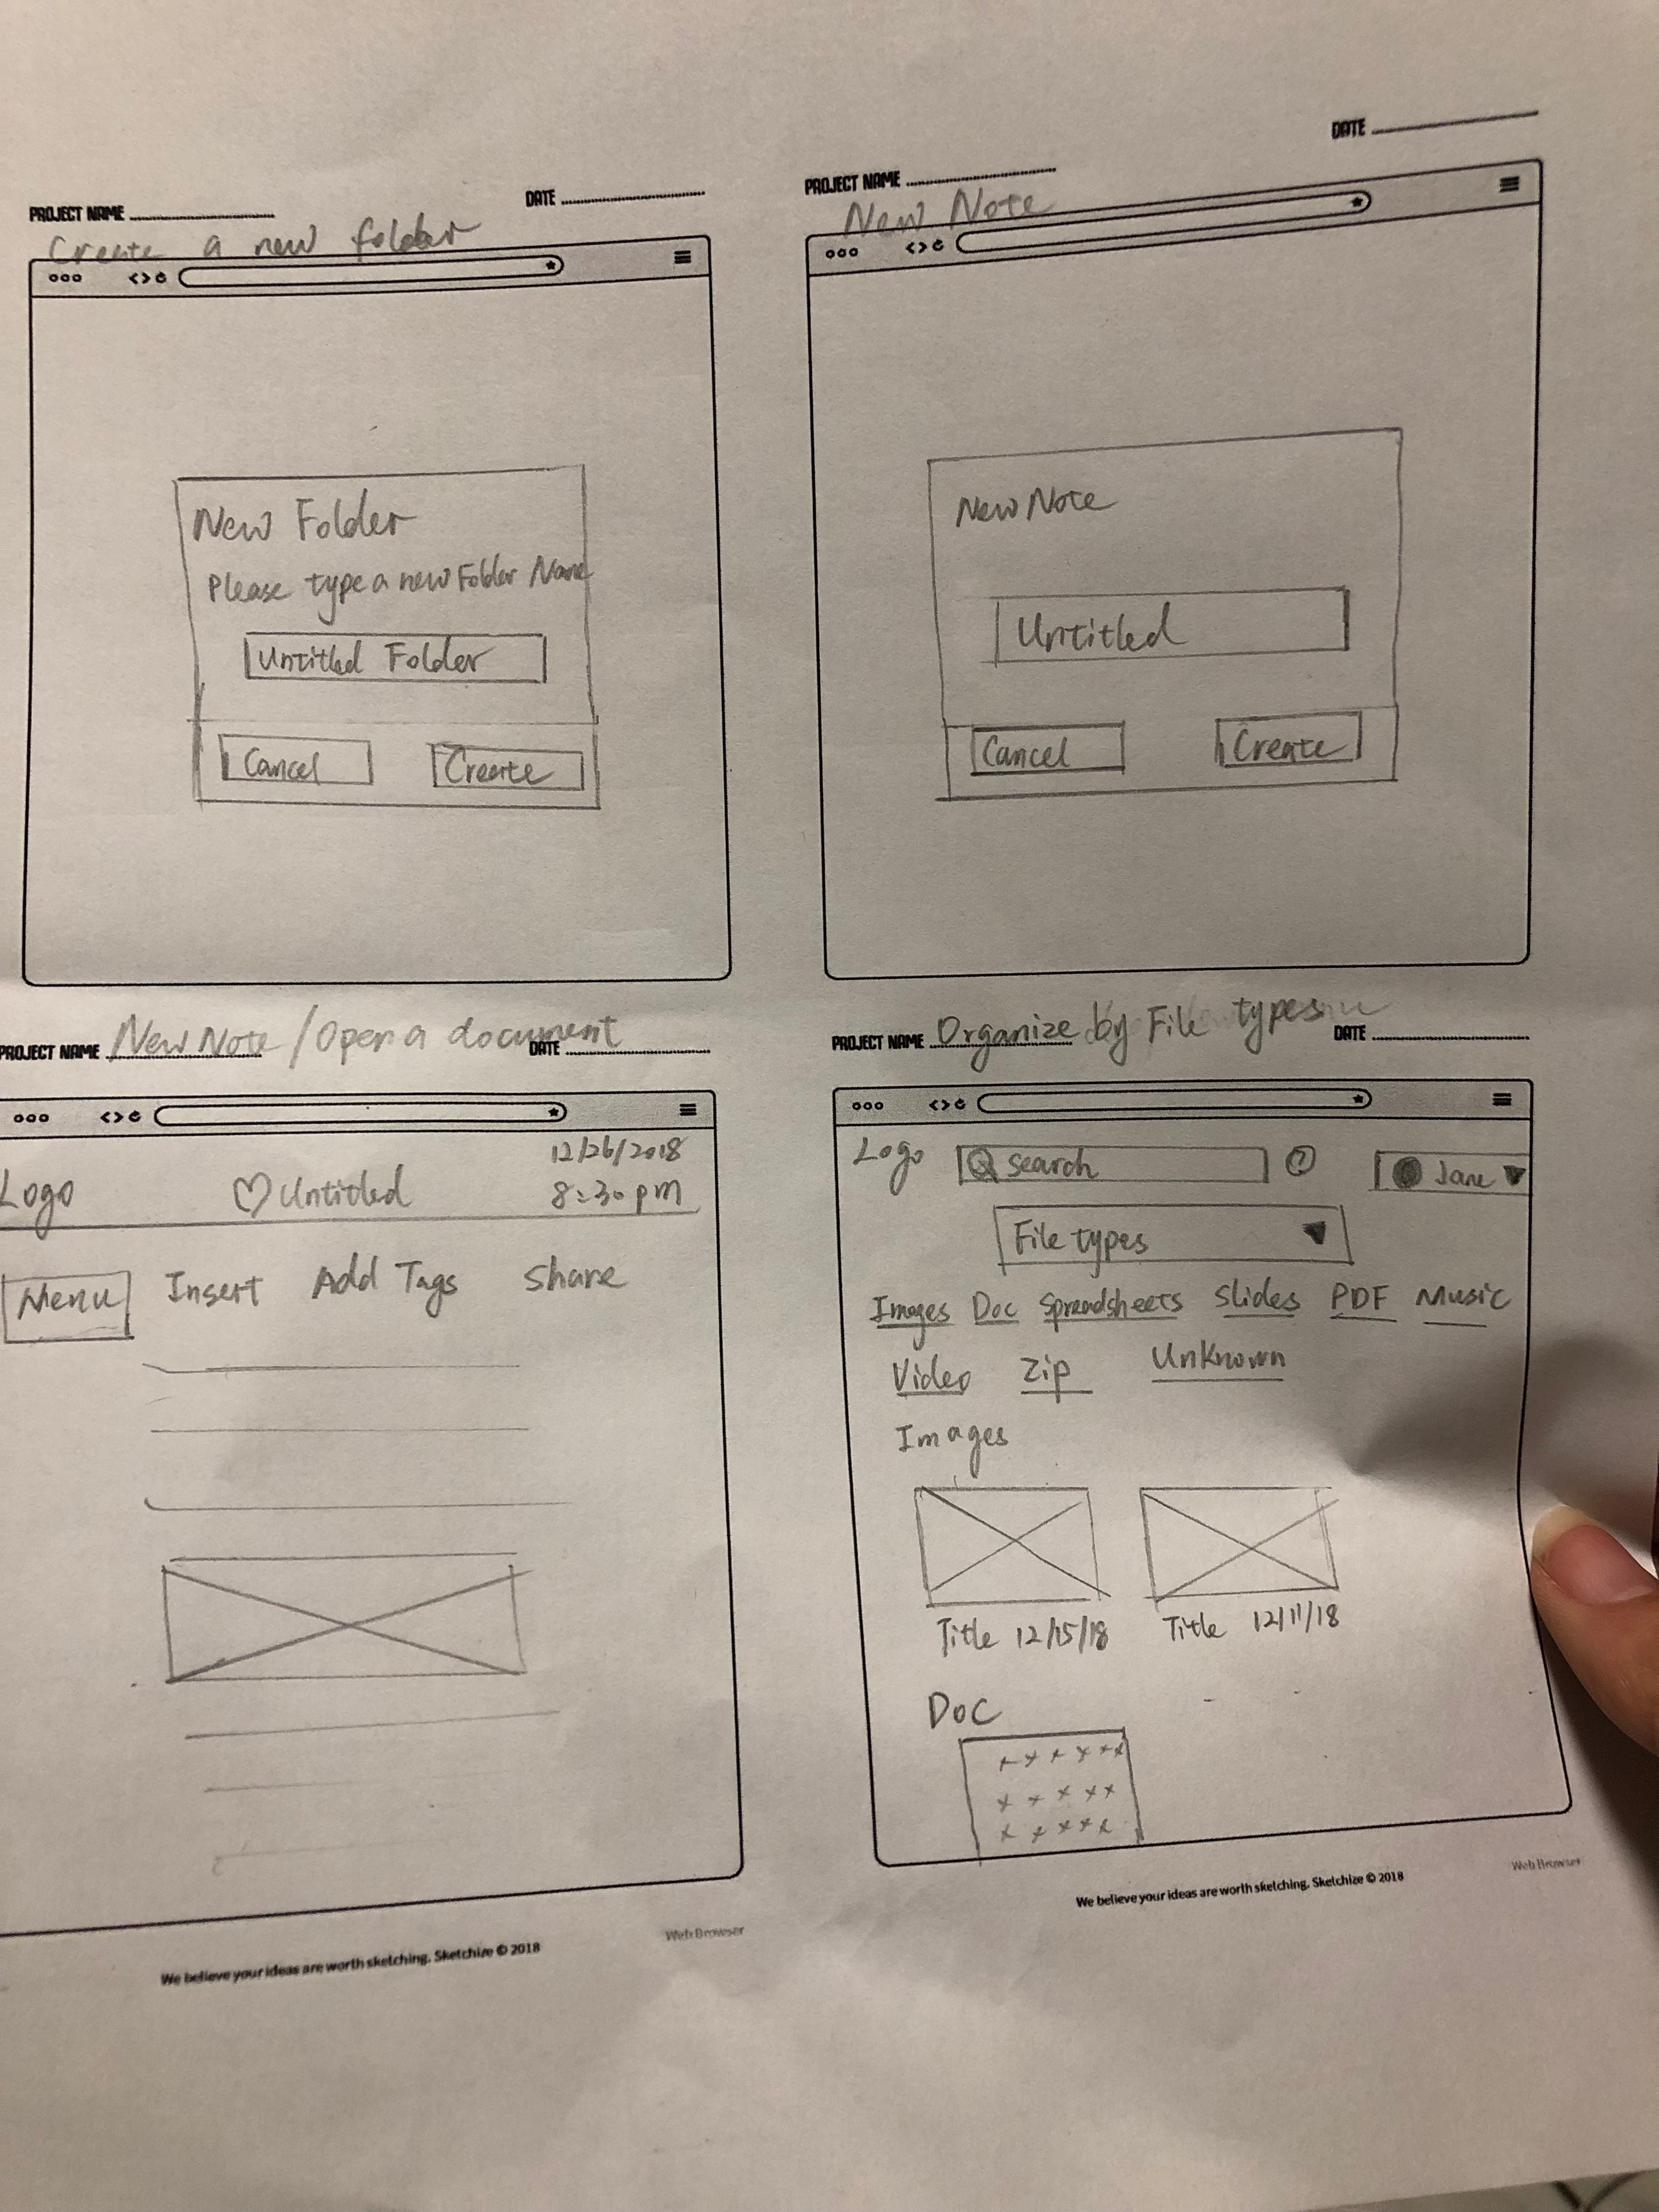 PROJECT NAME
DATE
Create a new folder
New Folder
Please type a new Folder Name
Untitled Folder
Cancel
Create
PROJECT NAME
DATE
New Note
New Note
Untitled
Cancel
Create
PROJECT NAME New Note / Open a document
DATE
Logo
Untitled
12/26/2018
8:30 pm
Menu Insert Add Tags Share
We believe your ideas are worth sketching. Sketchize © 2018
Web Browser
PROJECT NAME Organize by File types
DATE
Logo
search
?
Jane
File types
Images Doc Spreadsheets Slides PDF Music
Video Zip Unknown
Images
Title 12/15/18
Title 12/11/18
Doc
We believe your ideas are worth sketching. Sketchize © 2018
Web Browser